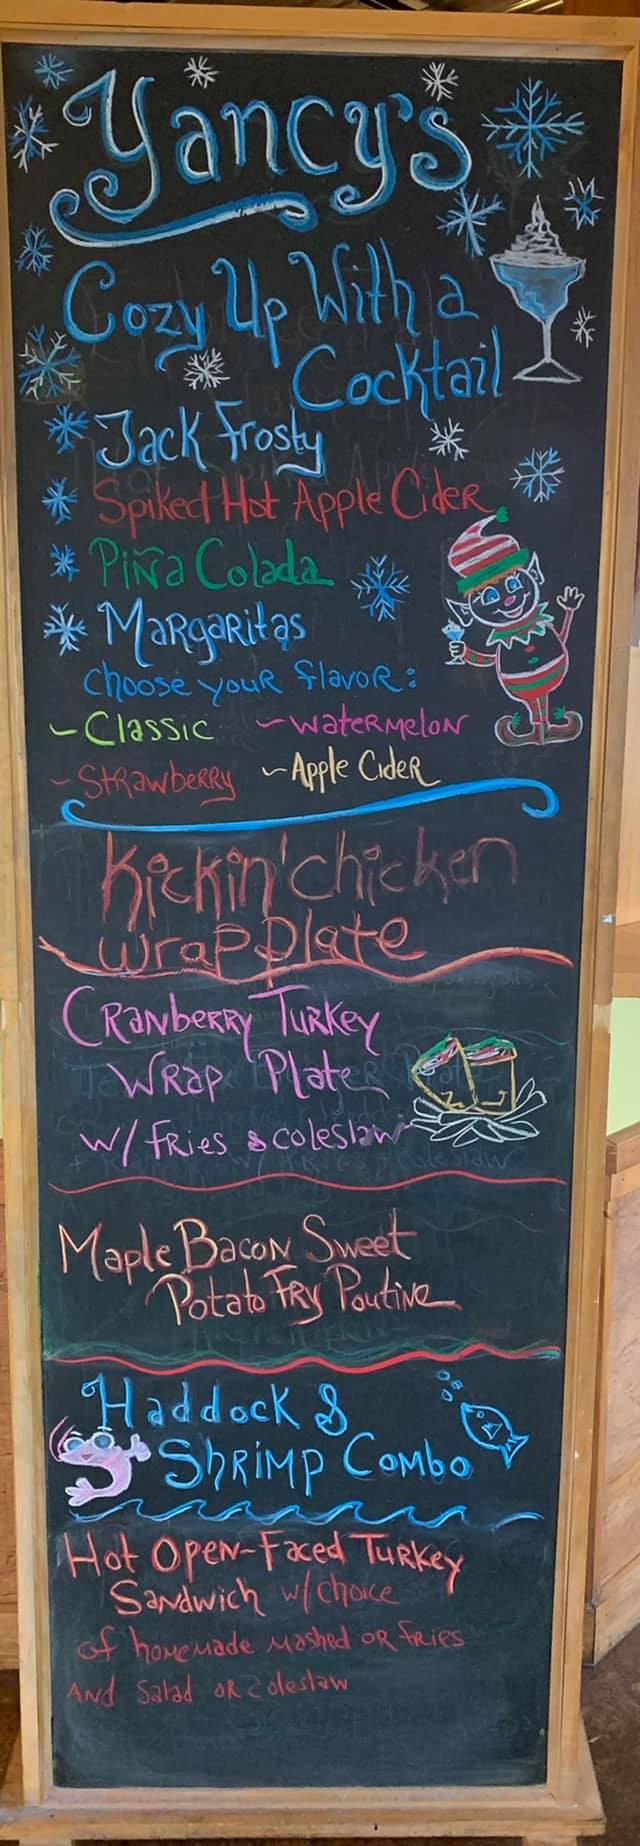 Yancy's
Cozy Up With a
Cocktail
Jack Frosty
Spiked Hot Apple Cider
Piña Colada
Margaritas
Choose your flavor:
- Classic - Watermelon
- Strawberry - Apple Cider
Kickin' Chicken
Wrap Plate
Cranberry Turkey
Wrap Plate
w/ fries & coleslaw
Maple Bacon Sweet
Potato Fry Poutine
Haddock &
Shrimp Combo
Hot Open-Faced Turkey
Sandwich w/ choice
of homemade mashed or fries
And Salad or coleslaw